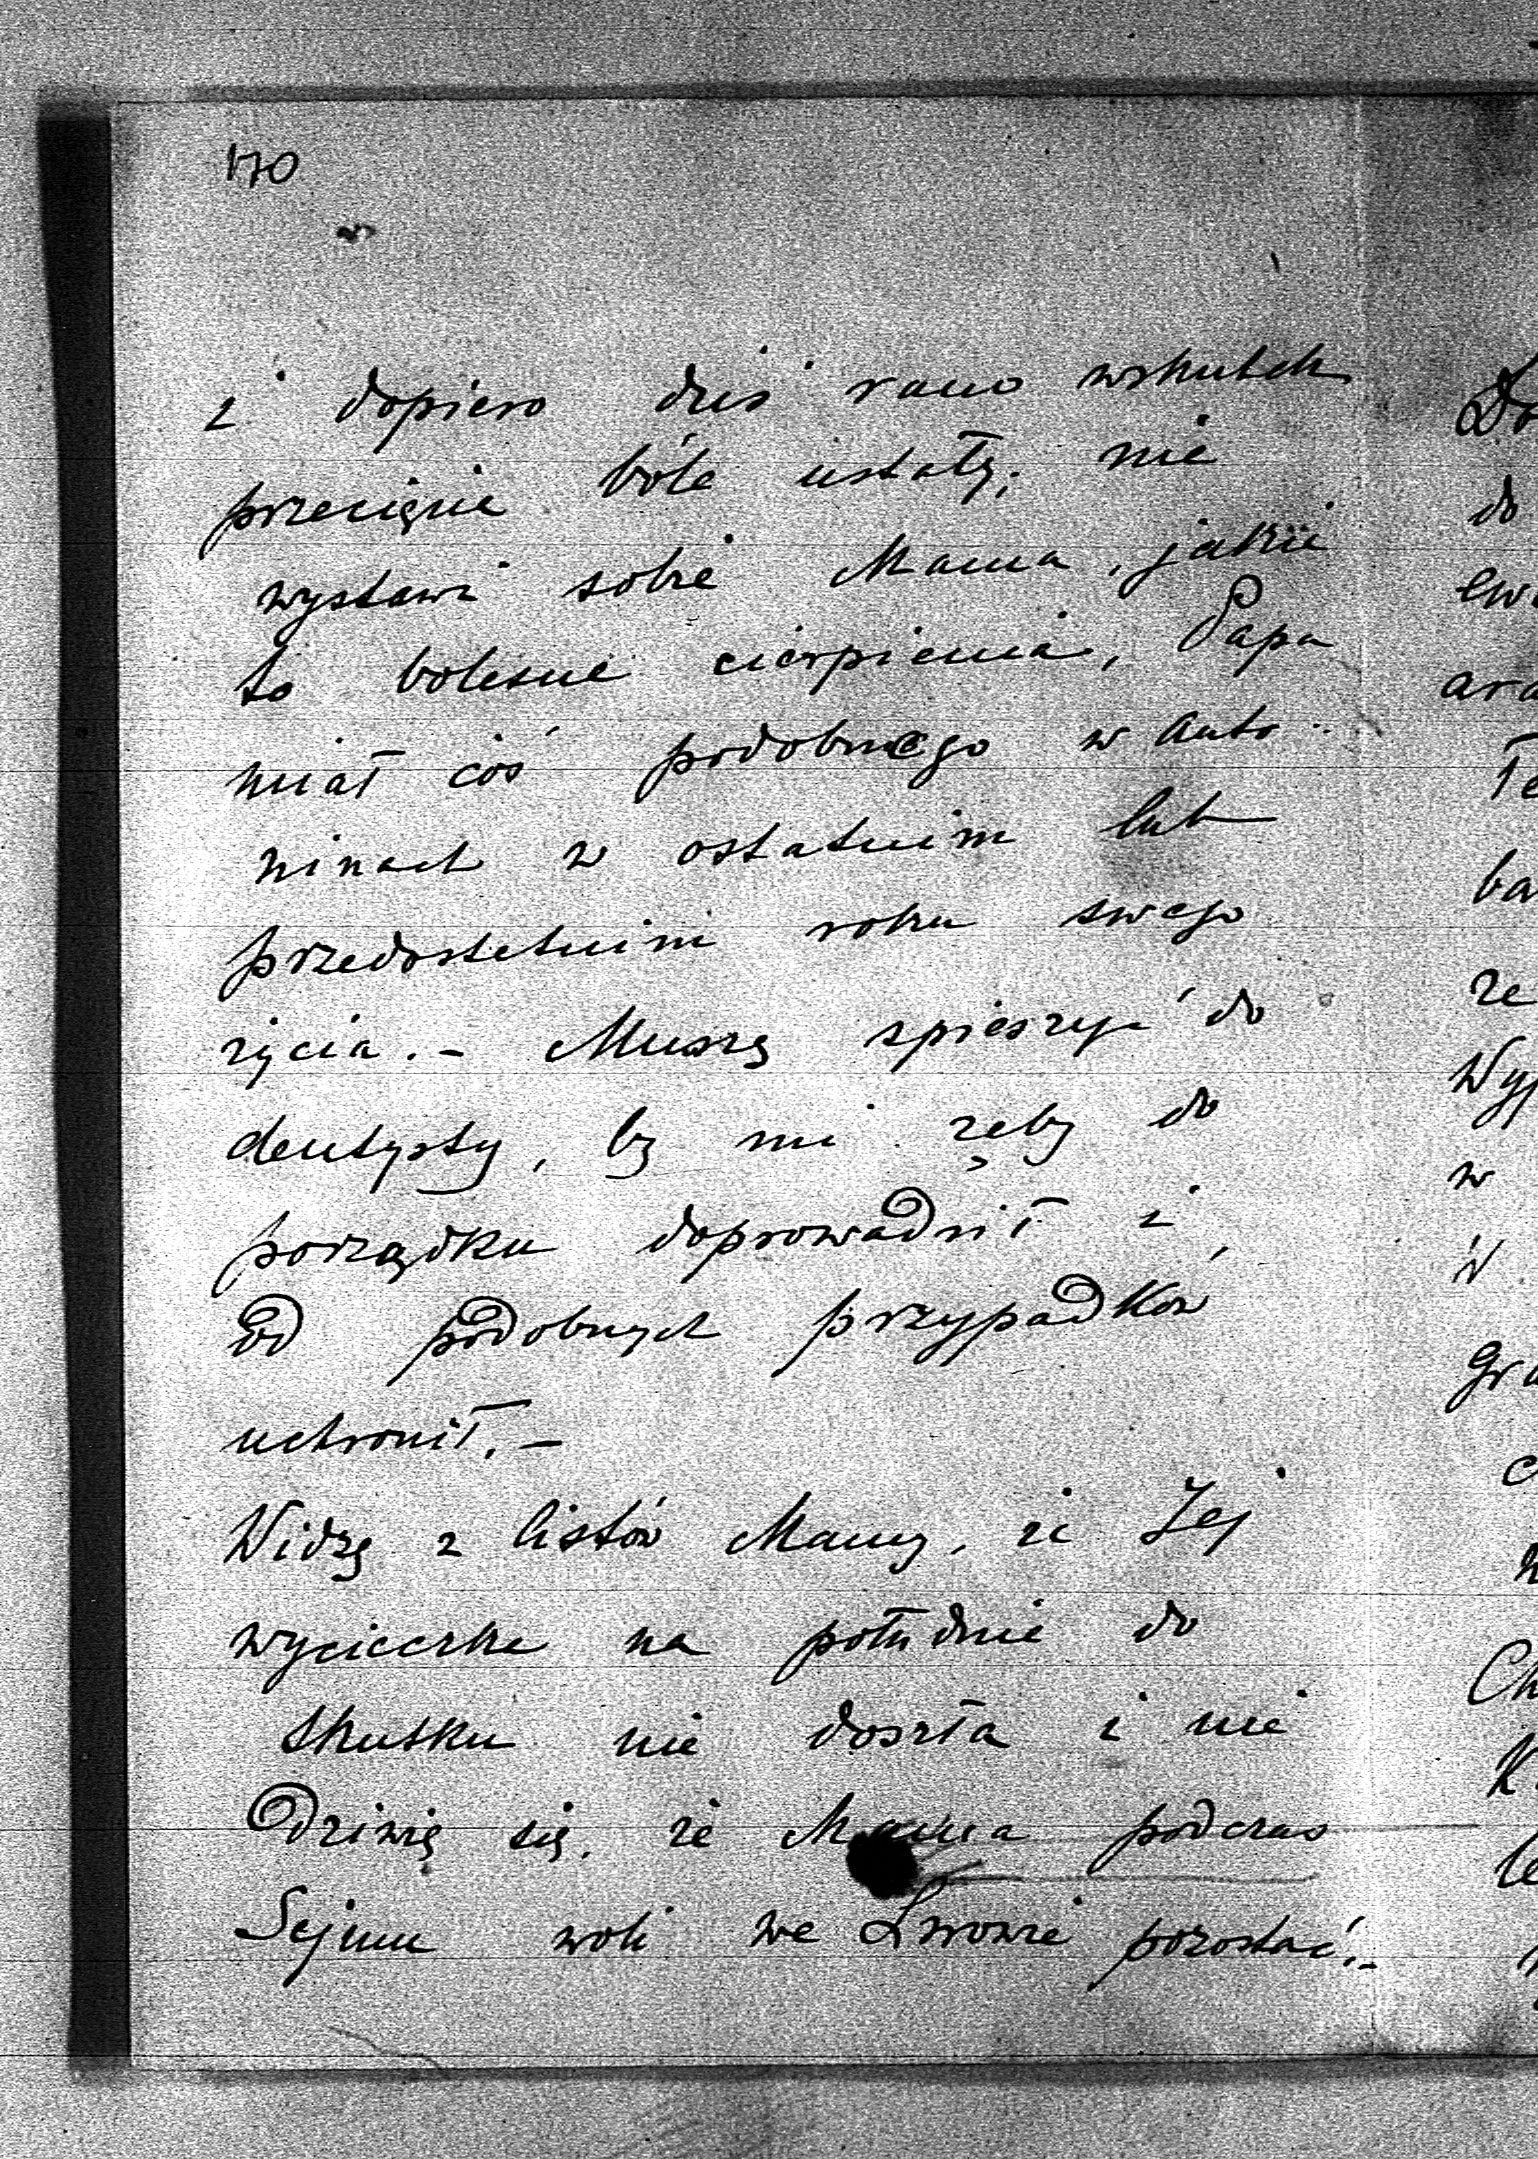 170
i dopiero dziś rano wskutek
przecięcie bóle ustały; nie
wystawi sobie Mama, jakie
to bolesne cierpienia, Papa
miał coś podobnego w Anto-
ninach w ostatnim lub
przedostatnim roku swego
życia. – Muszę spieszyć do
dentysty, by mi zęby do
porządku doprowadził i
od podobnych przypadków
uchronił. –
Widzę z listów Mamy, że Jej
wycieczka na południe do
skutku nie doszła i nie
dziwię się, że Mama podczas
Sejmu woli we Lwowie pozostać. –
do
w